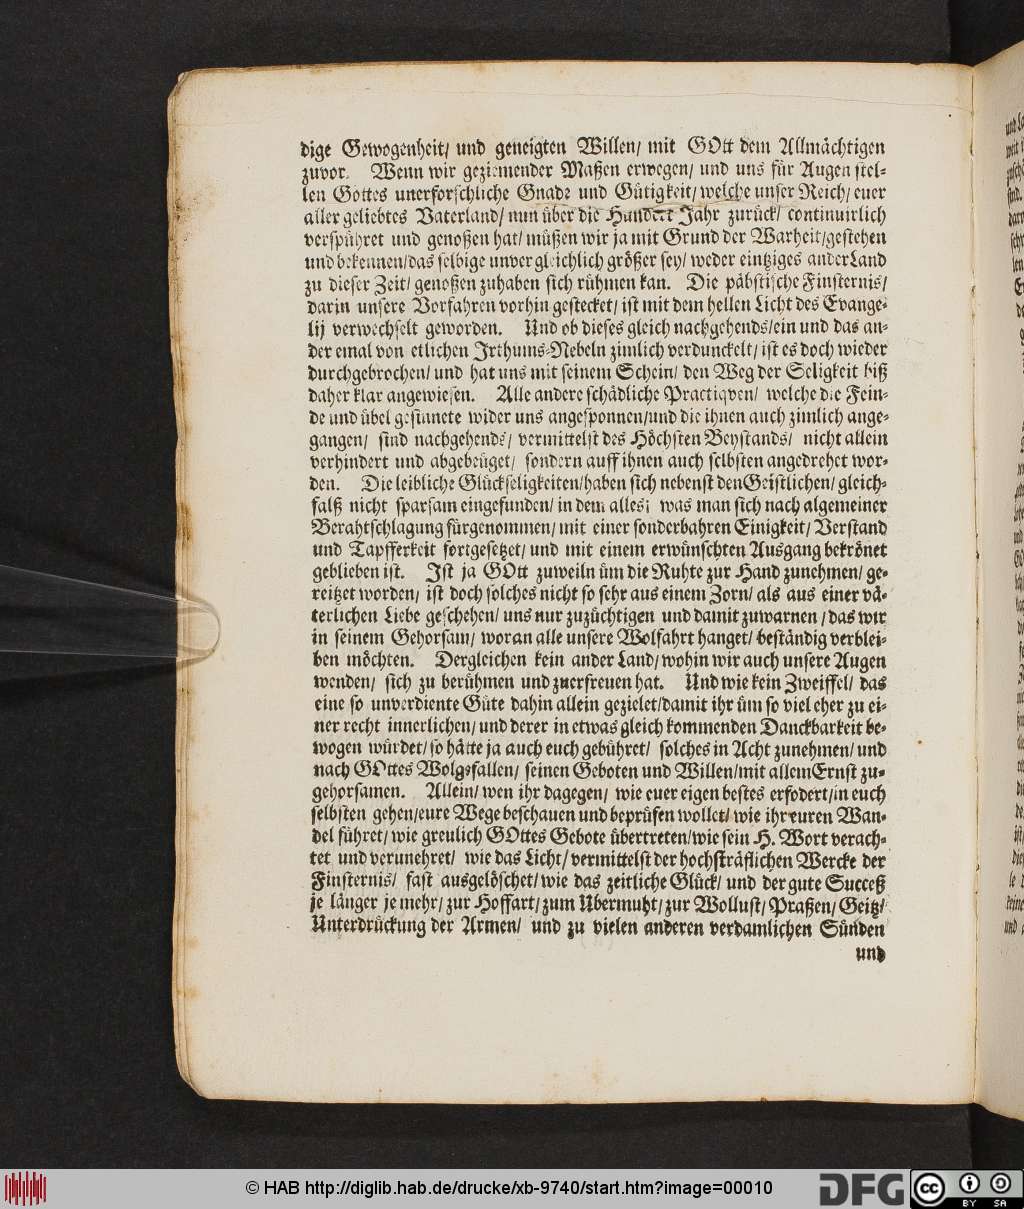 dige Gewogenheit/ und geneigten Willen/ mit GOtt dem Allmächtigen
zuvor. Wenn wir geziemender Maßen erwegen/ und uns für Augen stel-
len Gottes unerforschliche Gnade und Gütigkeit/ welche unser Reich/ euer
aller geliebtes Vaterland/ nun über die Hundert Jahr zurück/ continuirlich
verspühret und genoßen hat/ müßen wir ja mit Grund der Warheit/gestehen
und bekennen/das selbige unvergleichlich größer sey/ weder eintziges anderLand
zu dieser Zeit/ genoßen zuhaben sich rühmen kan. Die päbstische Finsternis/
darin unsere Vorfahren vorhin gestecket/ ist mit dem hellen Licht des Evange-
lij verwechselt geworden. Und ob dieses gleich nachgehends/ein und das an-
der emal von etlichen Irthums-Nebeln zimlich verdunckelt/ ist es doch wieder
durchgebrochen/ und hat uns mit seinem Schein/ den Weg der Seligkeit biß
daher klar angewiesen. Alle andere schädliche Practiqven/ welche die Fein-
de und übel gesinnete wider uns angesponnen/und die ihnen auch zimlich ange-
gangen/ sind nachgehends/ vermittelst des Höchsten Beystands/ nicht allein
verhindert und abgebeuget/ sondern auff ihnen auch selbsten angedrehet wor-
den. Die leibliche Glückseligkeiten/haben sich nebenst denGeistlichen/ gleich-
falß nicht sparsam eingefunden/ in dem alles/ was man sich nach algemeiner
Berahtschlagung fürgenommen/ mit einer sonderbahren Einigkeit/ Verstand
und Tapfferkeit fortgesetzet/ und mit einem erwünschten Ausgang bekrönet
geblieben ist. Ist ja GOtt zuweiln üm die Ruhte zur Hand zunehmen/ ge-
reitzet worden/ ist doch solches nicht so sehr aus einem Zorn/ als aus einer vä-
terlichen Liebe geschehen/ uns nur zuzüchtigen und damit zuwarnen/ das wir
in seinem Gehorsam/ woran alle unsere Wolfahrt hanget/ beständig verblei-
ben möchten. Dergleichen kein ander Land/ wohin wir auch unsere Augen
wenden/ sich zu berühmen und zuerfreuen hat. Und wie kein Zweiffel/ das
eine so unverdiente Güte dahin allein gezielet/damit ihr üm so viel eher zu ei-
ner recht innerlichen/ und derer in etwas gleich kommenden Danckbarkeit be-
wogen würdet/ so hätte ja auch euch gebühret/ solches in Acht zunehmen/ und
nach GOttes Wolgefallen/ seinen Geboten und Willen/mit allemErnst zu-
gehorsamen. Allein/ wen ihr dagegen/ wie euer eigen bestes erfodert/in euch
selbsten gehen/eure Wege beschauen und beprüfen wollet/ wie ihr euren Wan-
del führet/ wie greulich GOttes Gebote übertreten/wie sein H. Wort verach-
tet und verunehret/ wie das Licht/ vermittelst der hochsträflichen Wercke der
Finsternis/ fast ausgelöschet/ wie das zeitliche Glück/ und der gute Succeß
je länger je mehr/ zur Hoffart/ zum Übermuht/ zur Wollust/ Praßen/ Geitz/
Unterdrückung der Armen/ und zu vielen anderen verdamlichen Sünden
und
© HAB http://diglib.hab.de/drucke/xb-9740/start.htm?image=00010
DFG
cc
BY SA